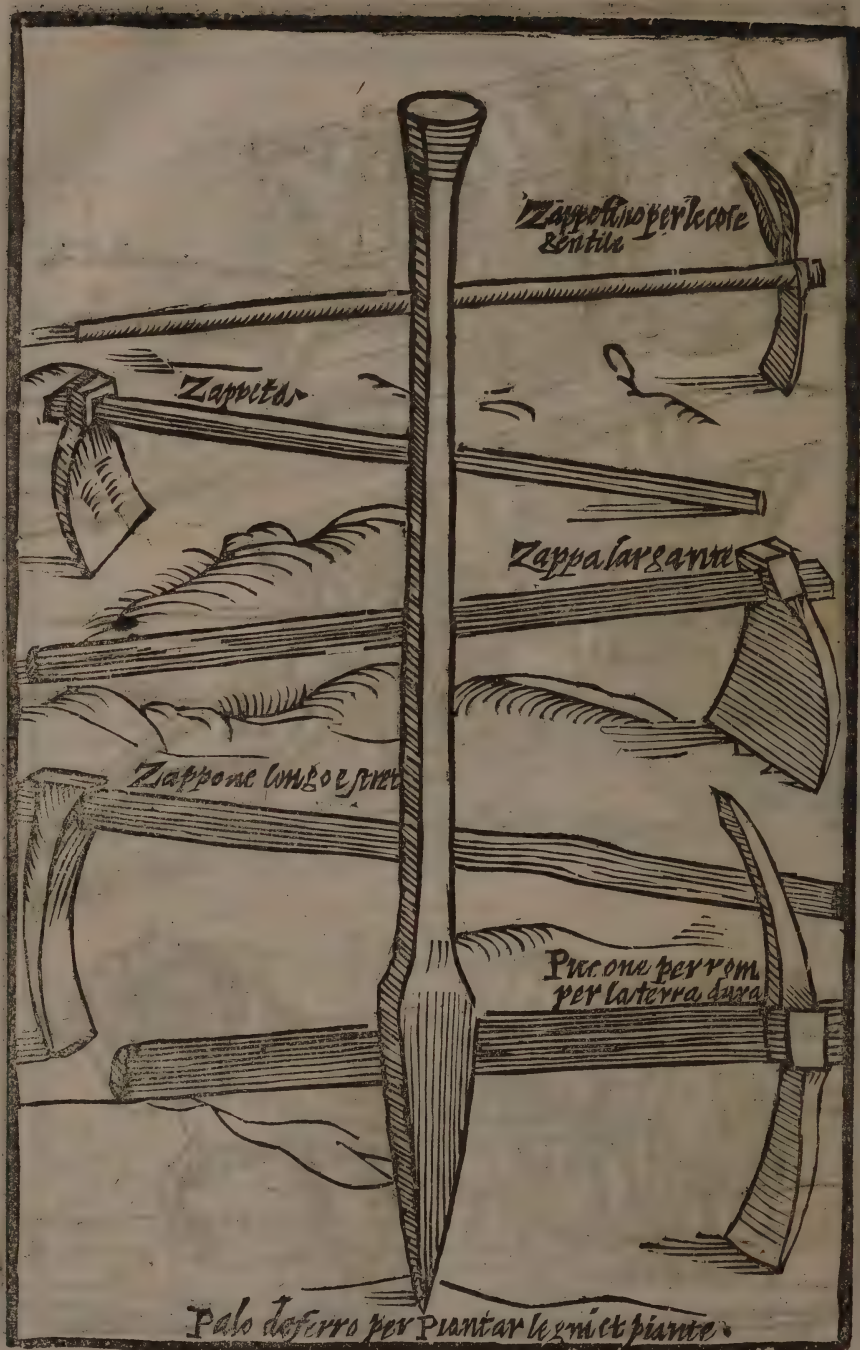 Zappettino per le cose
gentile
Zappeta
Zappa largante
Zappone longo e
Piccone per rom
per la terra dura
Palo de ferro per Piantar legni et piante.